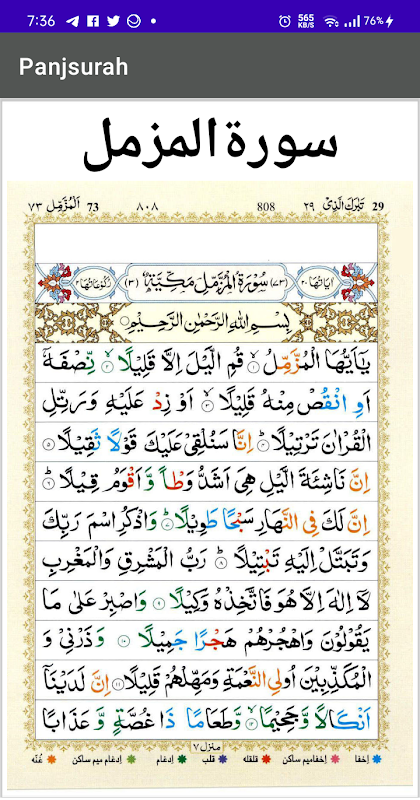 7:36
565 KB/S
76%
Panjsurah
سورة المزمل
اَلْمُزَّمِّل ٧٣ 73 ٨٠٨ 808 تَبٰرَكَ الَّذِىْ ٢٩ 29
اٰيَاتُهَا ٢٠ (٧٣) سُوْرَةُ الْمُزَّمِّلِ مَكِّيَّةٌ (٣) رُكُوْعَاتُهَا ٢
بِسْمِ اللّٰهِ الرَّحْمٰنِ الرَّحِيْمِ
يٰۤاَيُّهَا الْمُزَّمِّلُ ۙ﴿۱﴾ قُمِ الَّيْلَ اِلَّا قَلِيْلًا ۙ﴿۲﴾ نِّصْفَهٗۤ
اَوِ انْقُصْ مِنْهُ قَلِيْلًا ۙ﴿۳﴾ اَوْ زِدْ عَلَيْهِ وَ رَتِّلِ
الْقُرْاٰنَ تَرْتِيْلًا ؕ﴿۴﴾ اِنَّا سَنُلْقِىْ عَلَيْكَ قَوْلًا ثَقِيْلًا ﴿۵﴾
اِنَّ نَاشِئَةَ الَّيْلِ هِىَ اَشَدُّ وَطْاً وَّ اَقْوَمُ قِيْلًا ؕ﴿۶﴾
اِنَّ لَكَ فِى النَّهَارِ سَبْحًا طَوِيْلًا ؕ﴿۷﴾ وَ اذْكُرِ اسْمَ رَبِّكَ
وَ تَبَتَّلْ اِلَيْهِ تَبْتِيْلًا ؕ﴿۸﴾ رَبُّ الْمَشْرِقِ وَ الْمَغْرِبِ
لَاۤ اِلٰهَ اِلَّا هُوَ فَاتَّخِذْهُ وَكِيْلًا ﴿۹﴾ وَ اصْبِرْ عَلٰى مَا
يَقُوْلُوْنَ وَ اهْجُرْهُمْ هَجْرًا جَمِيْلًا ﴿۱۰﴾ وَ ذَرْنِىْ وَ
الْمُكَذِّبِيْنَ اُولِى النَّعْمَةِ وَ مَهِّلْهُمْ قَلِيْلًا ﴿۱۱﴾ اِنَّ لَدَيْنَاۤ
اَنْكَالًا وَّ جَحِيْمًا ۙ﴿۱۲﴾ وَّ طَعَامًا ذَا غُصَّةٍ وَّ عَذَابًا
منزل ٧
اِخفا اِخفامیم ساکن قلقله قلب اِدغام اِدغام میم ساکن غُنّه